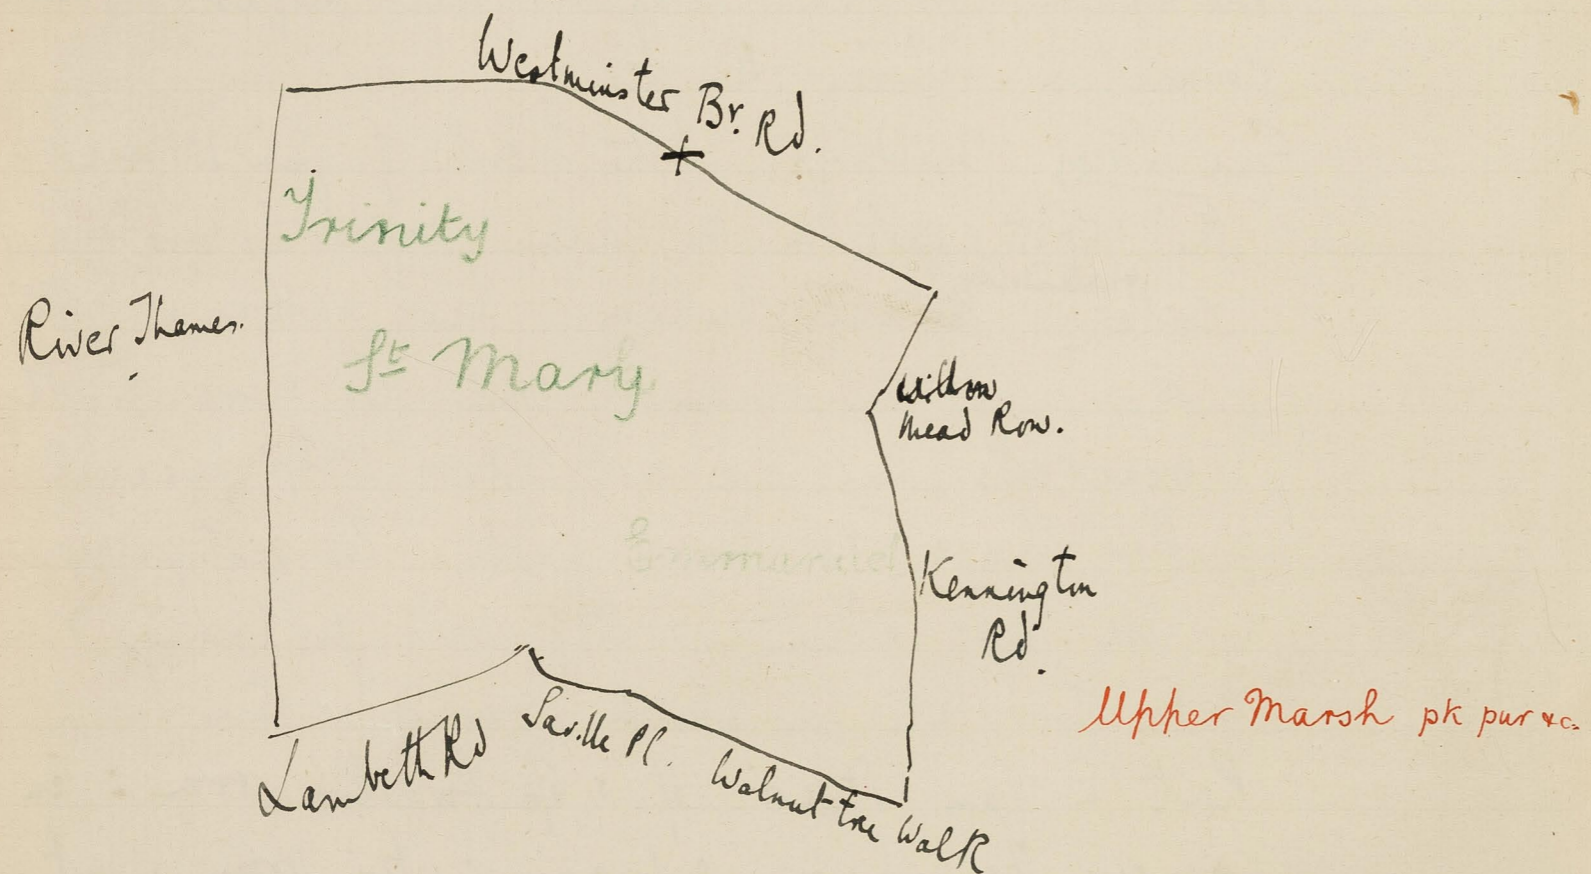 Westminster Br. Rd.
Trinity
River Thames.
St Mary
Mead Row.
Emmanuel
Kennington
Rd.
Upper Marsh pk pur &c.
Saville Pl.
Lambeth Rd
Walnut tree Walk